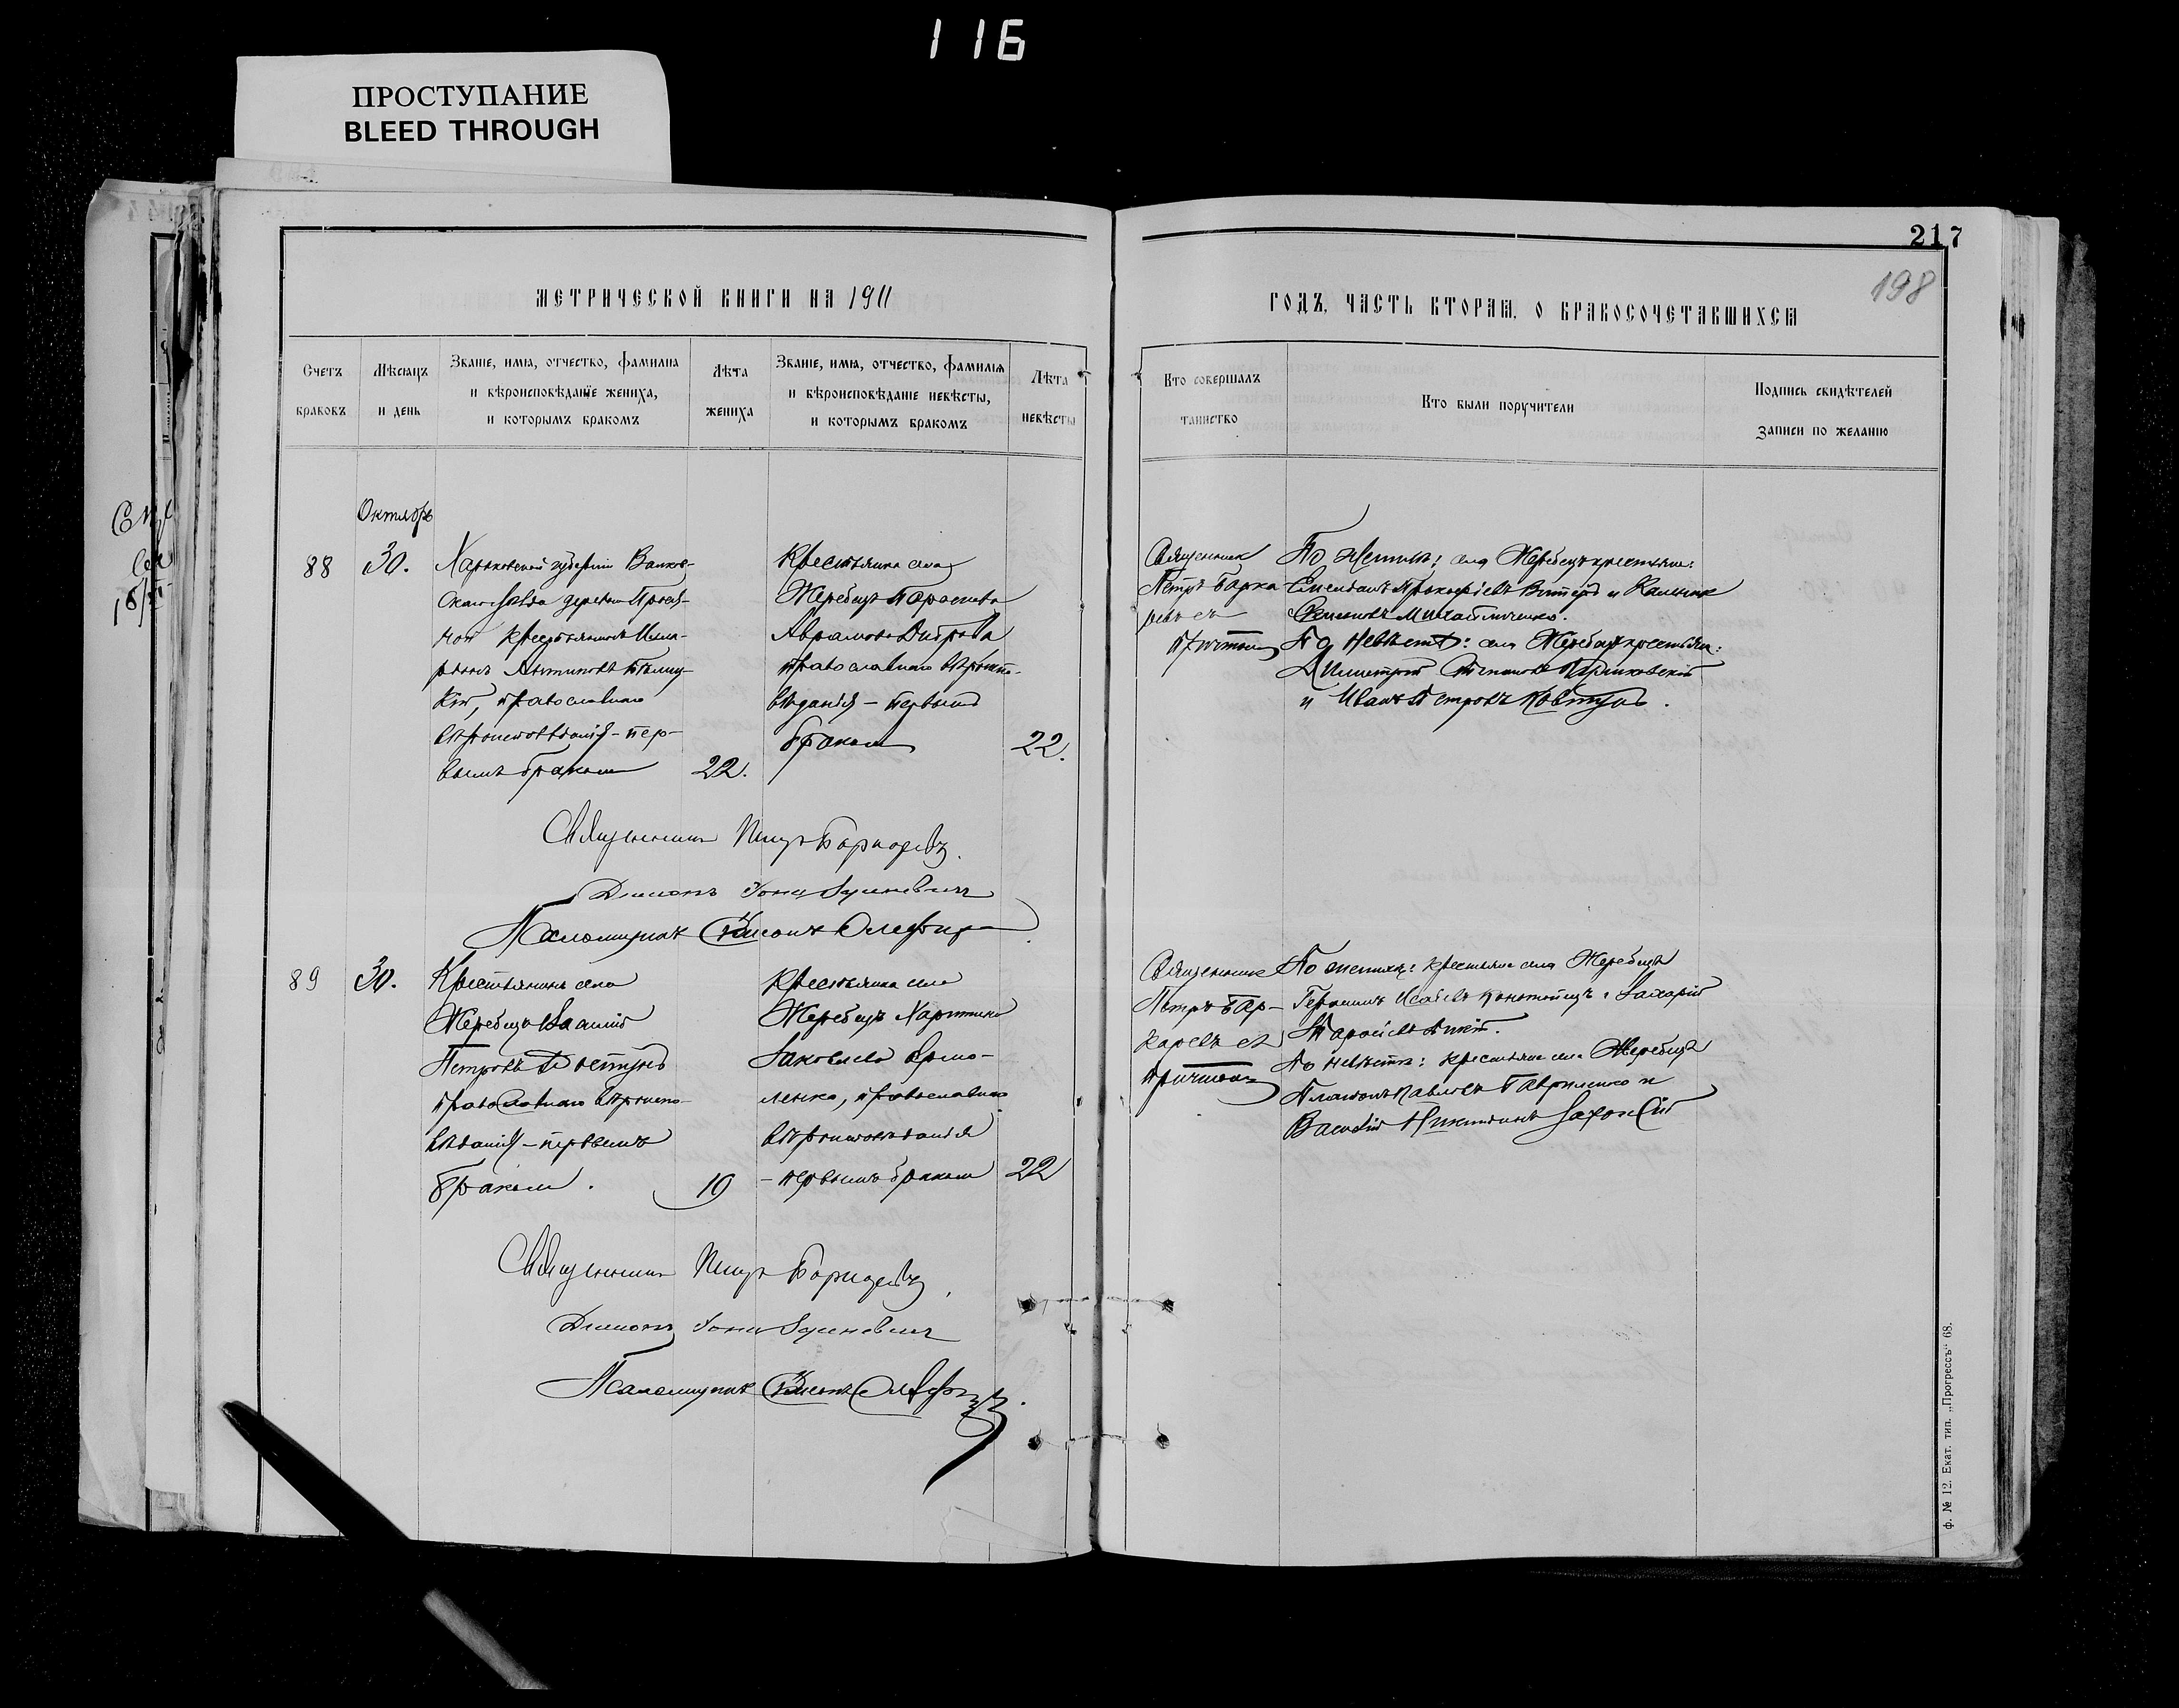 116
ПРОСТУПАНИЕ
BLEED THROUGH
217
198
МЕТРИЧЕСКОЙ КНИГИ НА 1911
ГОДЪ, ЧАСТЬ ВТОРАЯ, О БРАКОСОЧЕТАВШИХСЯ
Счетъ
браковъ
Мѣсяцъ
и день
Званіе, имя, отчество, фамилія
и вѣроисповѣданіе жениха,
и которымъ бракомъ
Лѣта
жениха
Званіе, имя, отчество, фамилія
и вѣроисповѣданіе невѣсты,
и которымъ бракомъ
Лѣта
невѣсты
Кто совершалъ
таинство
Кто были поручители
Подпись свидѣтелей
записи по желанію
Октябрь
88
30.
Харьковской губерніи Валков-
скаго уѣзда деревни
крестьянинъ
православнаго
вѣроисповѣданія – пер-
вымъ бракомъ
22.
Крестьянка села
Жеребецъ Параскева
Аврамова Диброва
православнаго вѣроиспо-
вѣданія – первымъ
бракомъ
22.
Священникъ
Петръ Барка
ревъ съ
причтомъ
По женихѣ: села Жеребецъ крестьяне:
Емеліанъ Прокофіевъ и
Михайличенко.
По невѣстѣ: села Жеребецъ крестьяне:
Димитрій
и Иванъ Петровъ Ковтунъ.
Священникъ Петръ Баркаревъ.
Діаконъ Іона
Псаломщикъ
89
30.
Крестьянинъ села
Жеребецъ Василій
Петровъ
православнаго вѣроиспо-
вѣданія – первымъ
бракомъ.
19
Крестьянка села
Жеребецъ Харитина
Яковлева Ярмо-
ленко, православнаго
вѣроисповѣданія
– первымъ бракомъ
22
Священникъ
Петръ Бар-
каревъ съ
причтомъ
По женихѣ: крестьяне села Жеребецъ
Герасимъ Исаевъ и Захарій
По невѣстѣ: крестьяне села Жеребецъ
Платонъ Павловъ Гавриленко и
Василій Никитинъ
Священникъ Петръ Баркаревъ.
Діаконъ Іона
Псаломщикъ
ф. № 12. Екат. тип. „Прогрессъ“ 68.